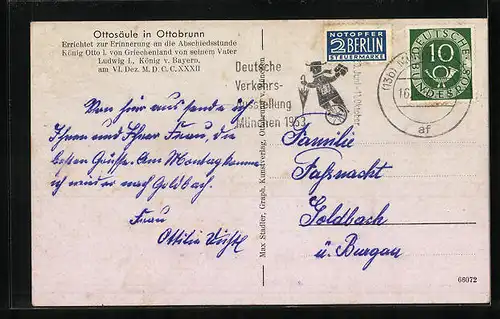 Ottosäule in Ottobrunn
Errichtet zur Erinnerung an die Abschiedsstunde
König Otto I. von Griechenland von seinem Vater
Ludwig I., König v. Bayern,
am VI. Dez. M. D. C. C. XXXII
NOTOPFER
2 BERLIN
STEUERMARKE
DEUTSCHE
BUNDESPOST
10
(13b)
16.
af
Deutsche
Verkehrs-
Ausstellung
München 1953
Juni - Oktober
Max Stadler, Graph. Kunstverlag, Ottobrunn v. München
Von hier aus sende ich
Ihnen und Ihrer Frau, die
besten Grüße. Am Montag komme
ich wieder nach Goldbach.
Frau
Ottilie
Familie
Faßnacht
Goldbach
ü. Burgau
66072